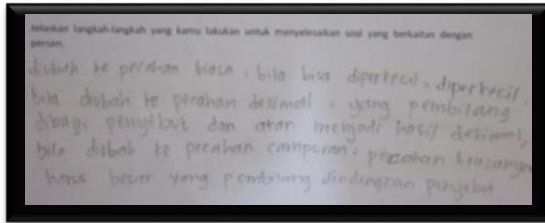 Jelaskan langkah-langkah yang kamu lakukan untuk menyelesaikan soal yang berkaitan dengan
persen.
diubah ke pecahan biasa, bila bisa diperkecil, diperkecil.
bila diubah ke pecahan desimal, yang pembilang
dibagi penyebut dan akan menjadi hasil desimal,
bila diubah ke pecahan campuran, pecahan biasanya
harus besar yang pembilang dindingran penyebut